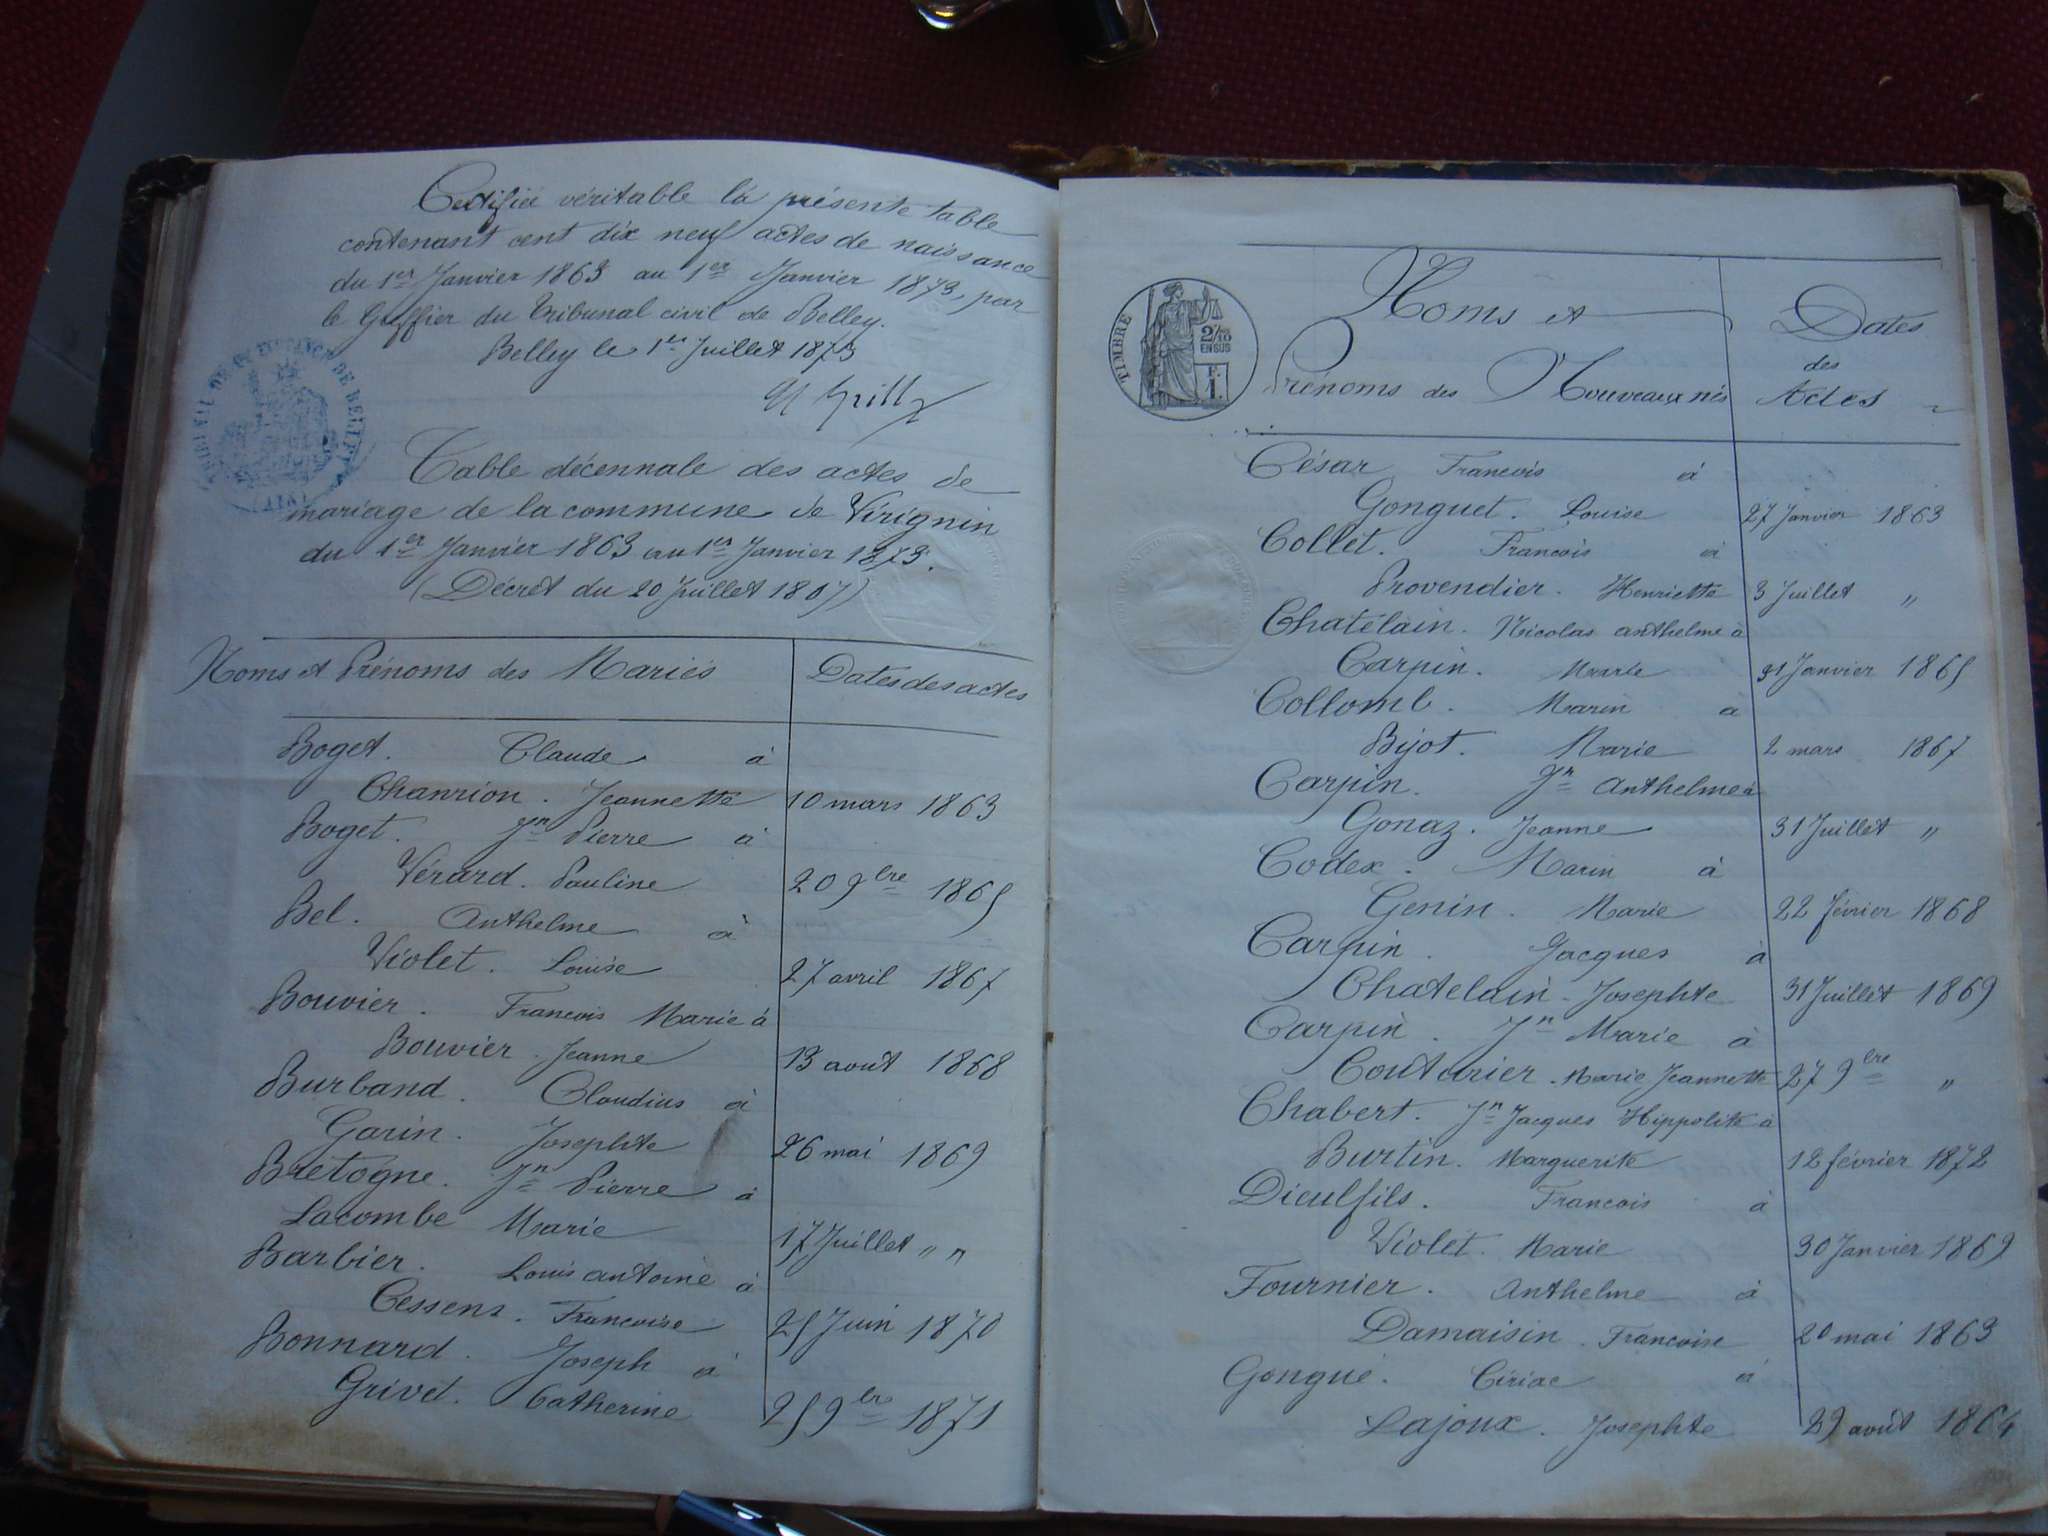 Certifiée véritable la présente table
contenant cent dix neuf actes de naissance
du 1er Janvier 1863 au 1er Janvier 1873, par
le Greffier du Tribunal civil de Belley.
Belley le 1er Juillet 1873
Table décennale des actes de
mariage de la commune de Virignin
du 1er Janvier 1863 au 1er Janvier 1873.
(Décret du 20 Juillet 1807)
Noms et Prénoms des Mariés Dates des actes
Boget. Claude à
Chanrion. Jeannette 10 mars 1863
Boget. Jn Pierre à
Vérard. Pauline 20 9bre 1865
Bel. Anthelme à
Violet. Louise 27 avril 1867
Bouvier. Francois Marie à
Bouvier. Jeanne 13 aout 1868
Burband. Claudius à
Garin. Josephte 26 mai 1869
Bretogne. Jn Pierre à
Lacombe Marie 17 Juillet " "
Barbier. Louis antoine à
Cessens. Francoise 25 Juin 1870
Bonnard. Joseph à
Grivet. Catherine 25 9bre 1871
TIMBRE
2/10
EN SUS
1 F.
Noms et
Prénoms des Nouveaux nés
Dates
des
Actes
César Francois à
Gonguet. Louise 27 Janvier 1863
Collet. Francois à
Provendier. Henriette 3 Juillet "
Chatelain. Nicolas anthelme à
Carpin. Marie 31 Janvier 1865
Collomb. Marin à
Bijot. Marie 2 mars 1867
Carpin. Jn Anthelme à
Gonaz. Jeanne 31 Juillet "
Codex. Marin à
Genin. Marie 22 février 1868
Carpin. Jacques à
Chatelain. Josephte 31 Juillet 1869
Carpin. Jn Marie à
Couturier. Marie Jeannette 27 9bre "
Chabert. Jn Jacques Hippolite à
Burtin. Marguerite 12 février 1872
Dieulfils. Francois à
Violet. Marie 30 Janvier 1869
Fournier. Anthelme à
Damaisin. Francoise 20 mai 1863
Gongué. Ciriac à
Lajoux. Josephte 29 août 1864